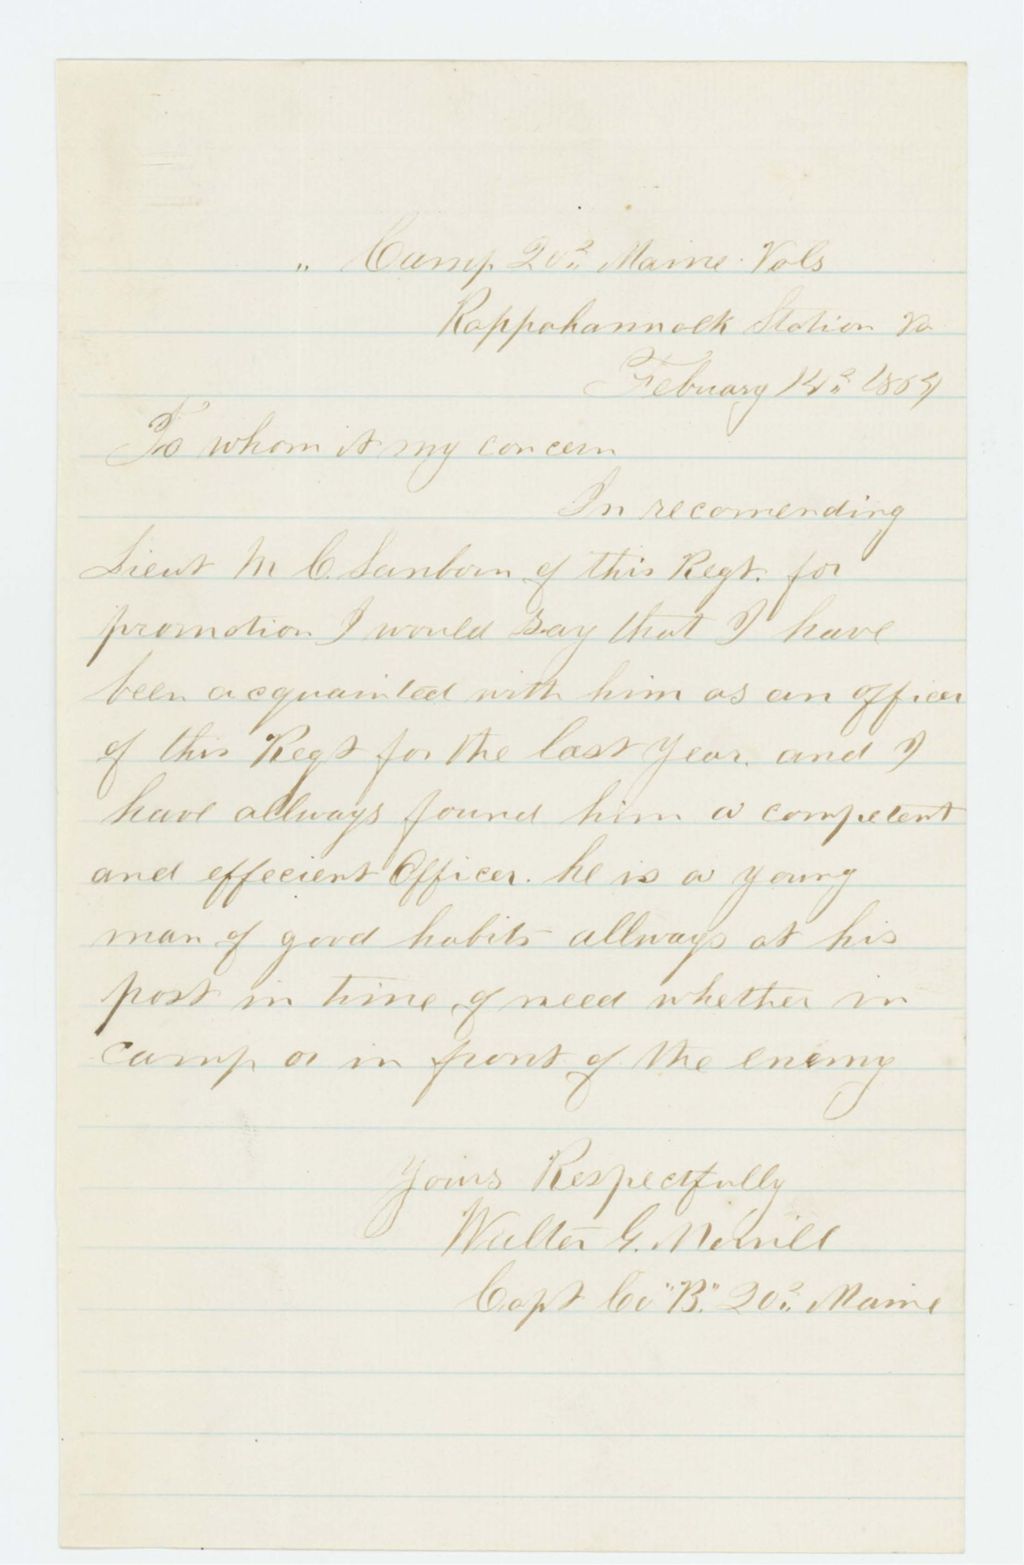 " Camp 20th Maine Vols
Rappahannock Station Va
Febuary 14th 1864
To whom it my concern
In recomending
Lieut M C. Sanborn of this Regt. for
promotion I would say that I have
been acquainted with him as an officer
of this Regt for the last year. and I
have allways found him a competent
and effecient Officer. he is a young
man of good habits allways at his
post in time of need whether in
camp or in front of the enemy
Yours Respectfully
Walter G. Morrill
Capt Co "B." 20th Maine